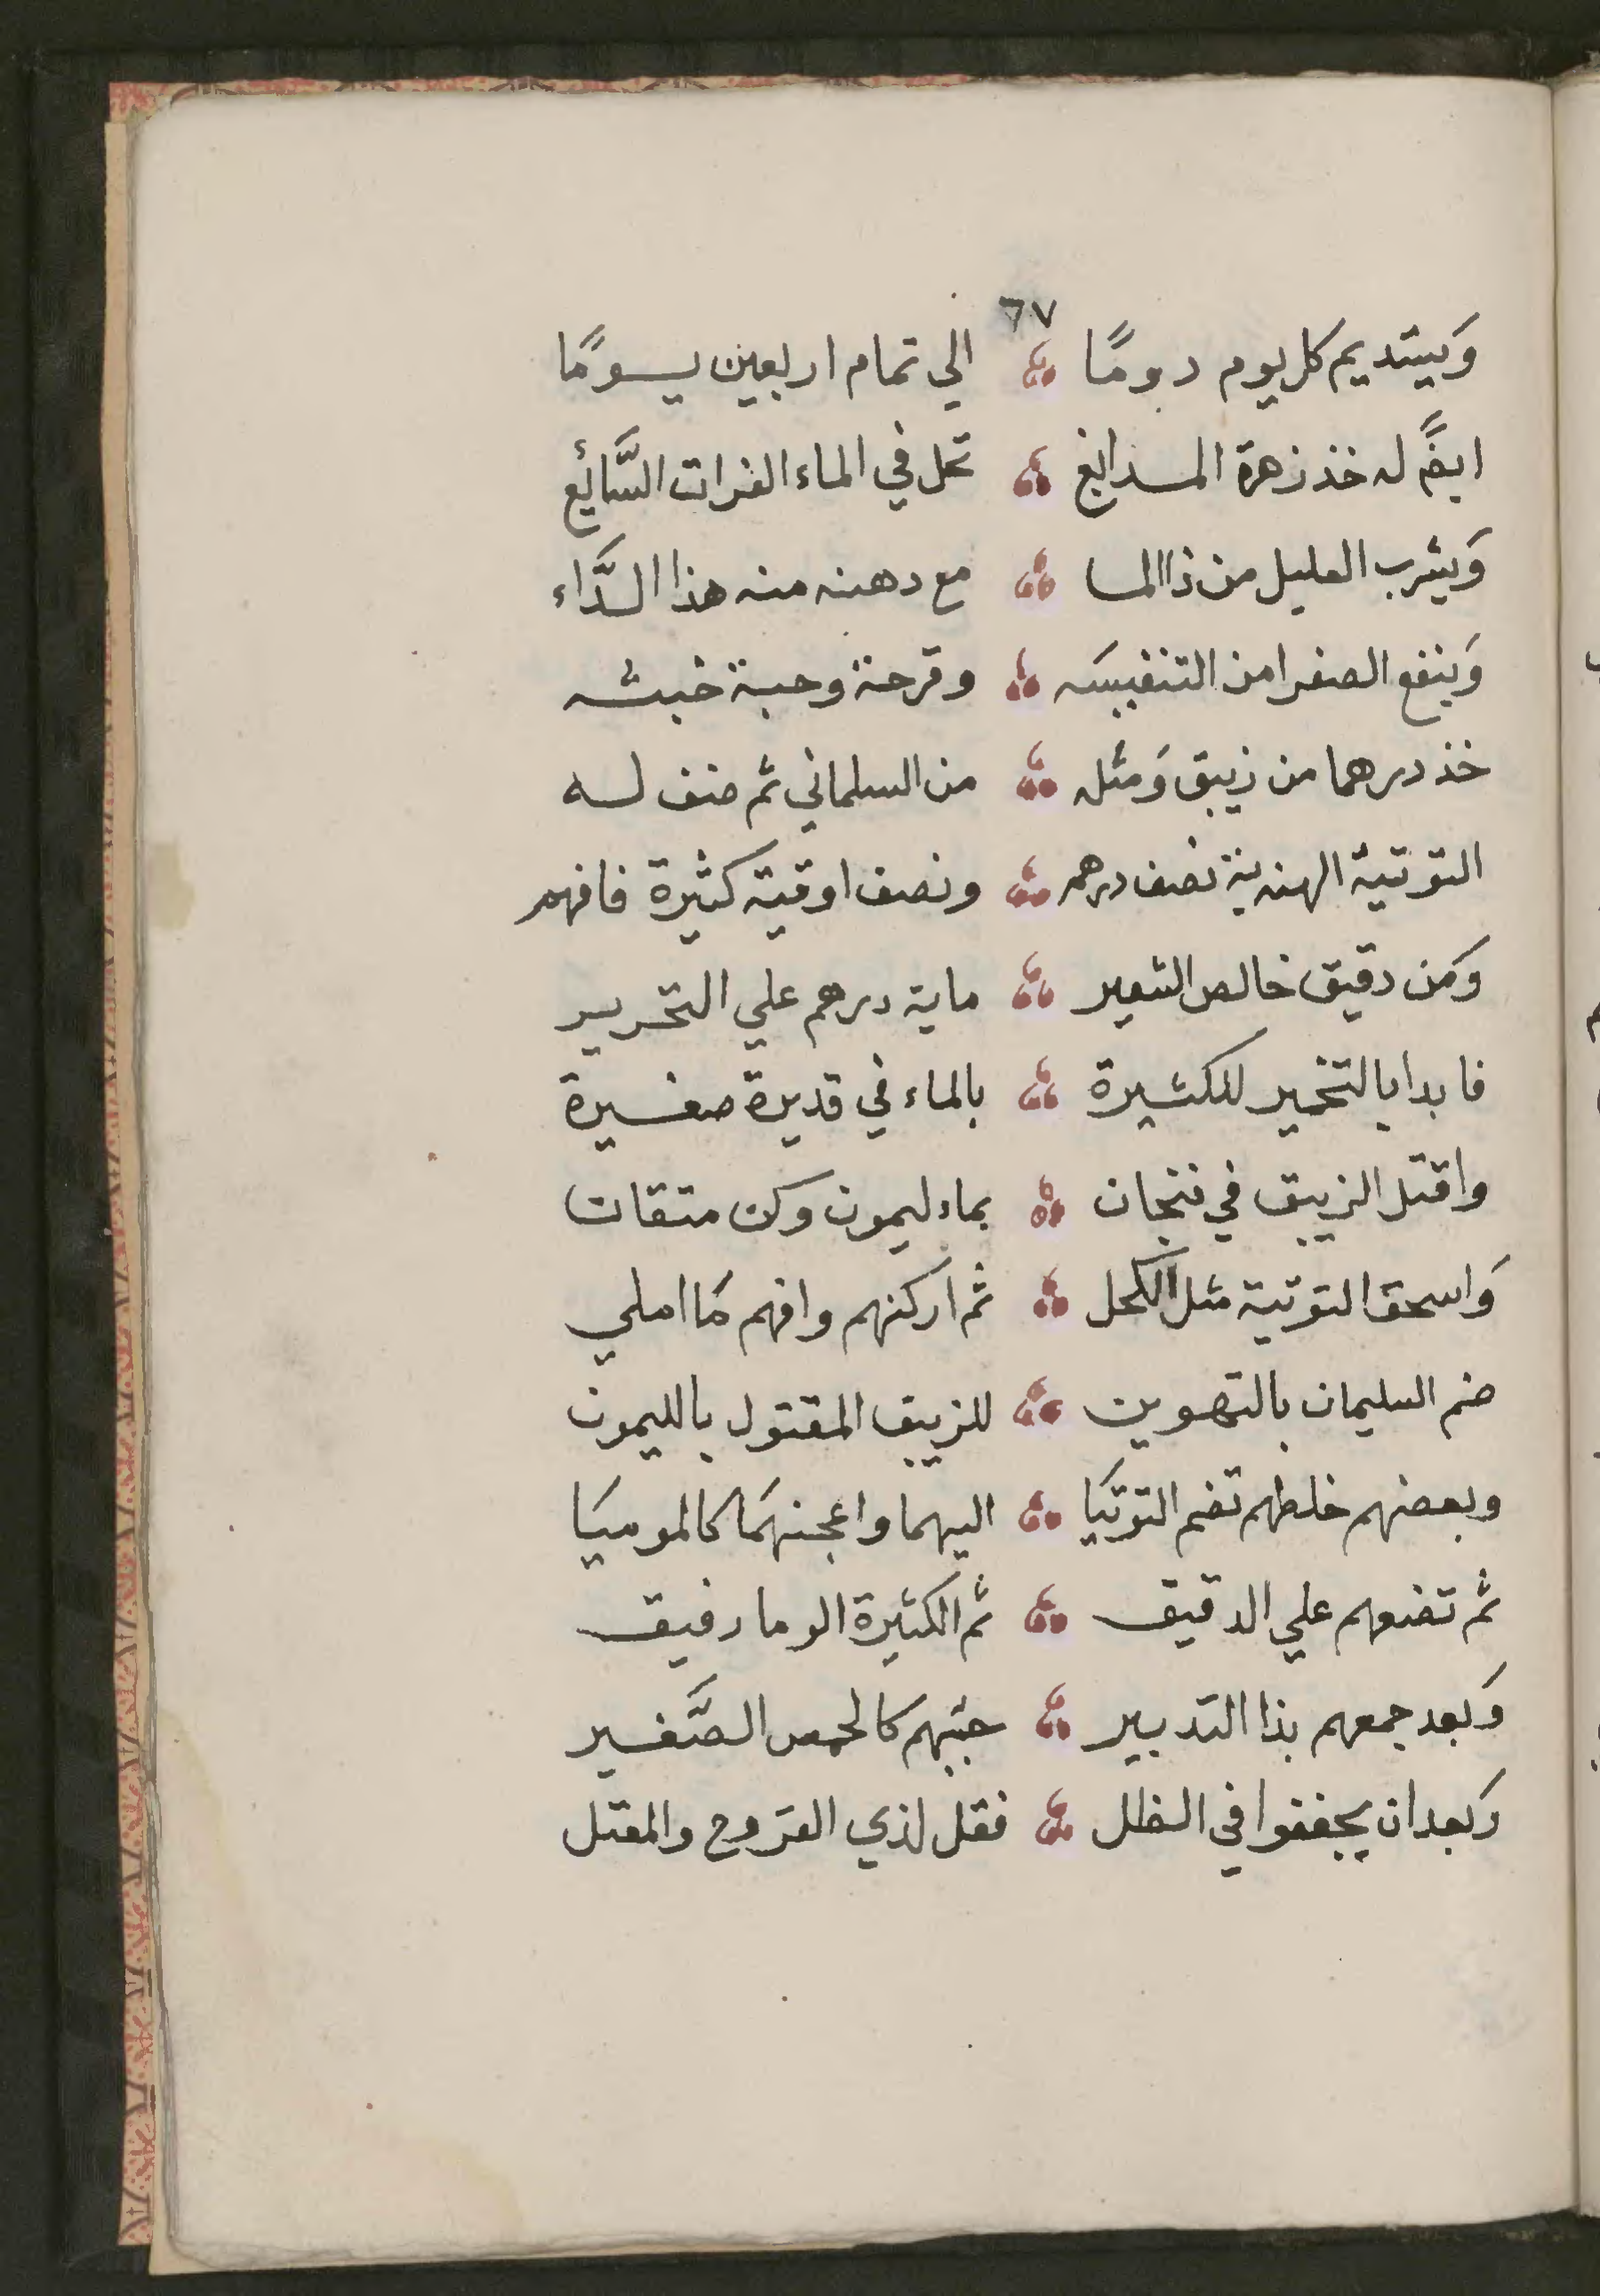 ٦٧
وَيستديم كل يوم دومًا الي تمام اربعين يومًا
ايضًا له خذ زهرة المدابغ تحل في الماء الفرات السَّائغ
وَيشرب العليل من ذا الما مع دهنه منه هذا الدَّاء
وَينفع الصفرا من وقرحة وحبة خبثه
خذ درهما من زيبق وَمثله من السلماني ثم ضف له
التوتية الهندية نصف درهم ونصف اوقية كثيرة فافهم
وَمن دقيق خالص الشعير ماية درهم علي التحرير
فابدا بالتخمير للكثيرة بالماء في قديرة صغيرة
واقتل الزيبق في فنجان بماء ليمون وكن متقان
وَاسحق التوتية مثل الكحل ثم اركنهم وافهم مَا املي
ضم السليمان بالتهوين للزيبق المقتول بالليمون
وبعضهم خلطهم تضم التوتيَا اليهما واعجنهمَا كالموميَا
ثم تضعهم علي الدقيق ثم الكثيرة الوما رفيق
وَبعد جمعهم بذا التدبير حببهم كالحمص الصَّغير
وَبعد ان يجففوا في الظل فقل لذي القروح والمقتل